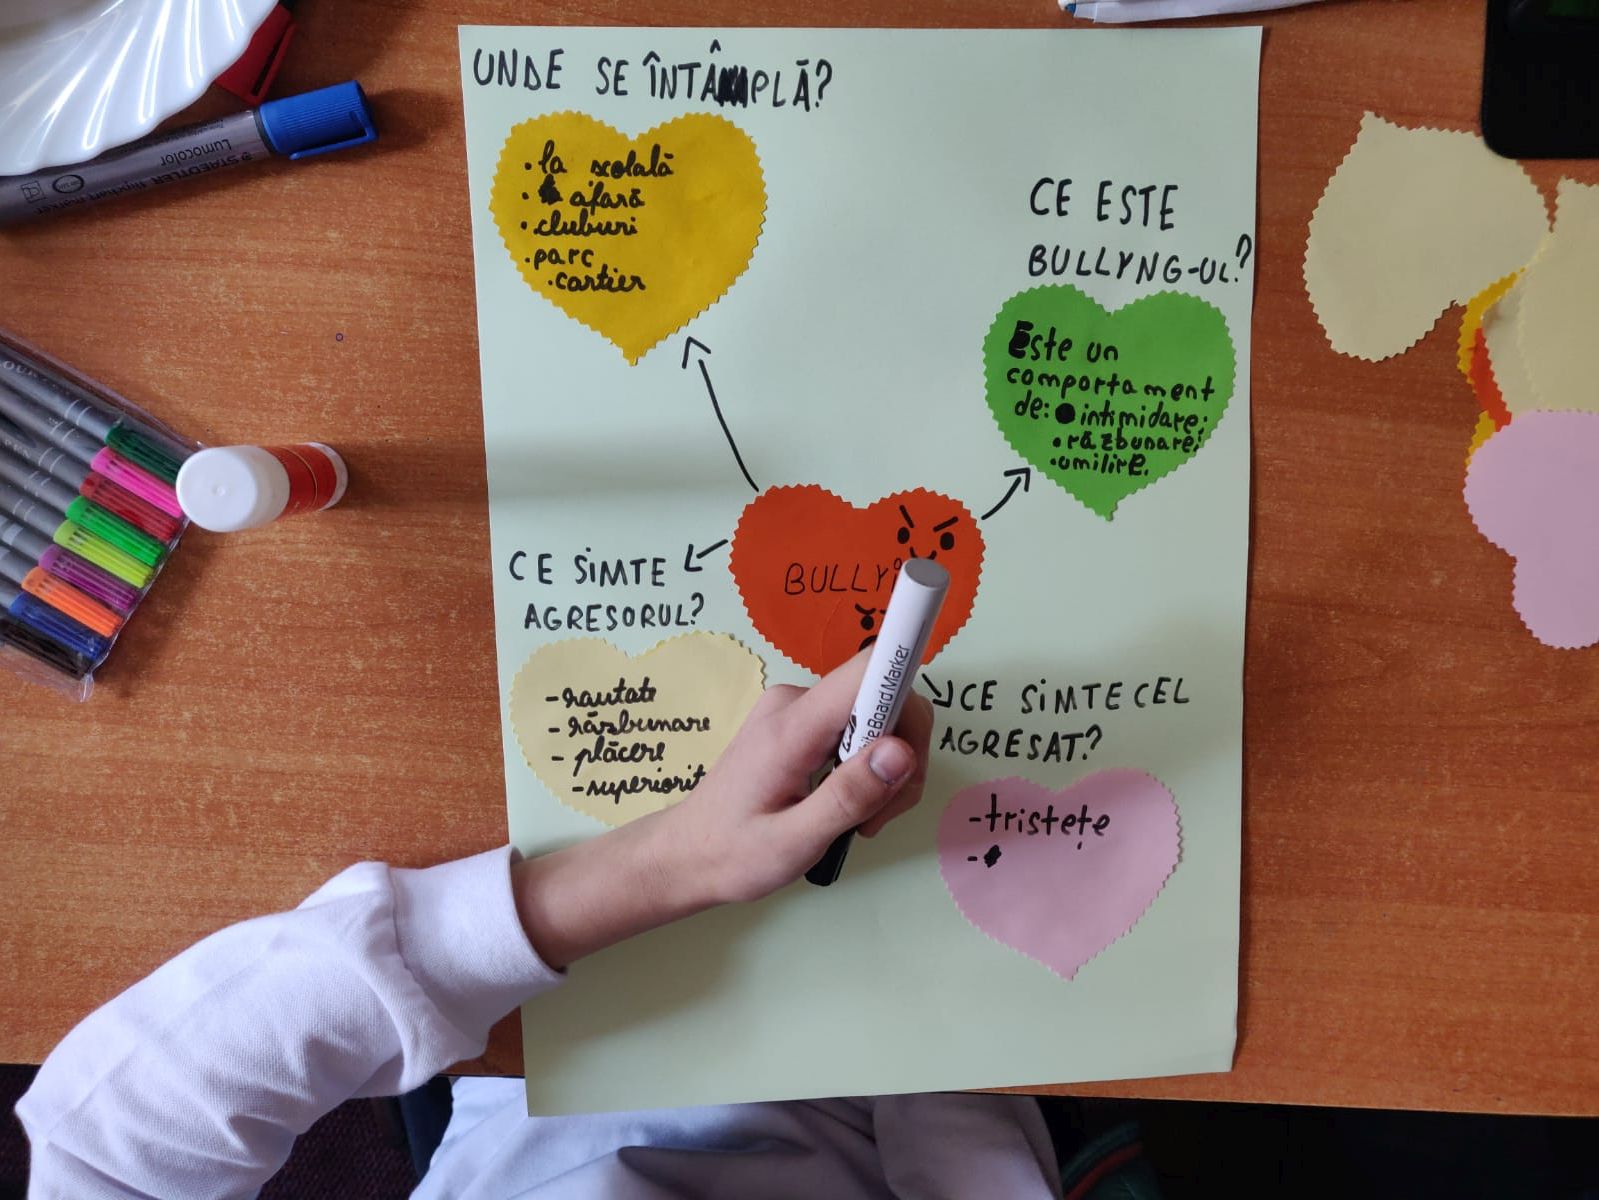 UNDE SE ÎNTÂMPLĂ?
• la scolală
• afară
• cluburi
• parc
• cartier
CE ESTE
BULLYNG-UL?
Este un
comportament
de: • intimidare;
• răzbunare;
• umilire.
BULLYi
CE SiMTE
AGRESORUL?
- rautate
- răzbunare
- plăcere
- superiorit
CE SiMTE CEL
AGRESAT?
- tristețe
-
STAEDTLER flipchart marker
Lumocolor
Board Marker